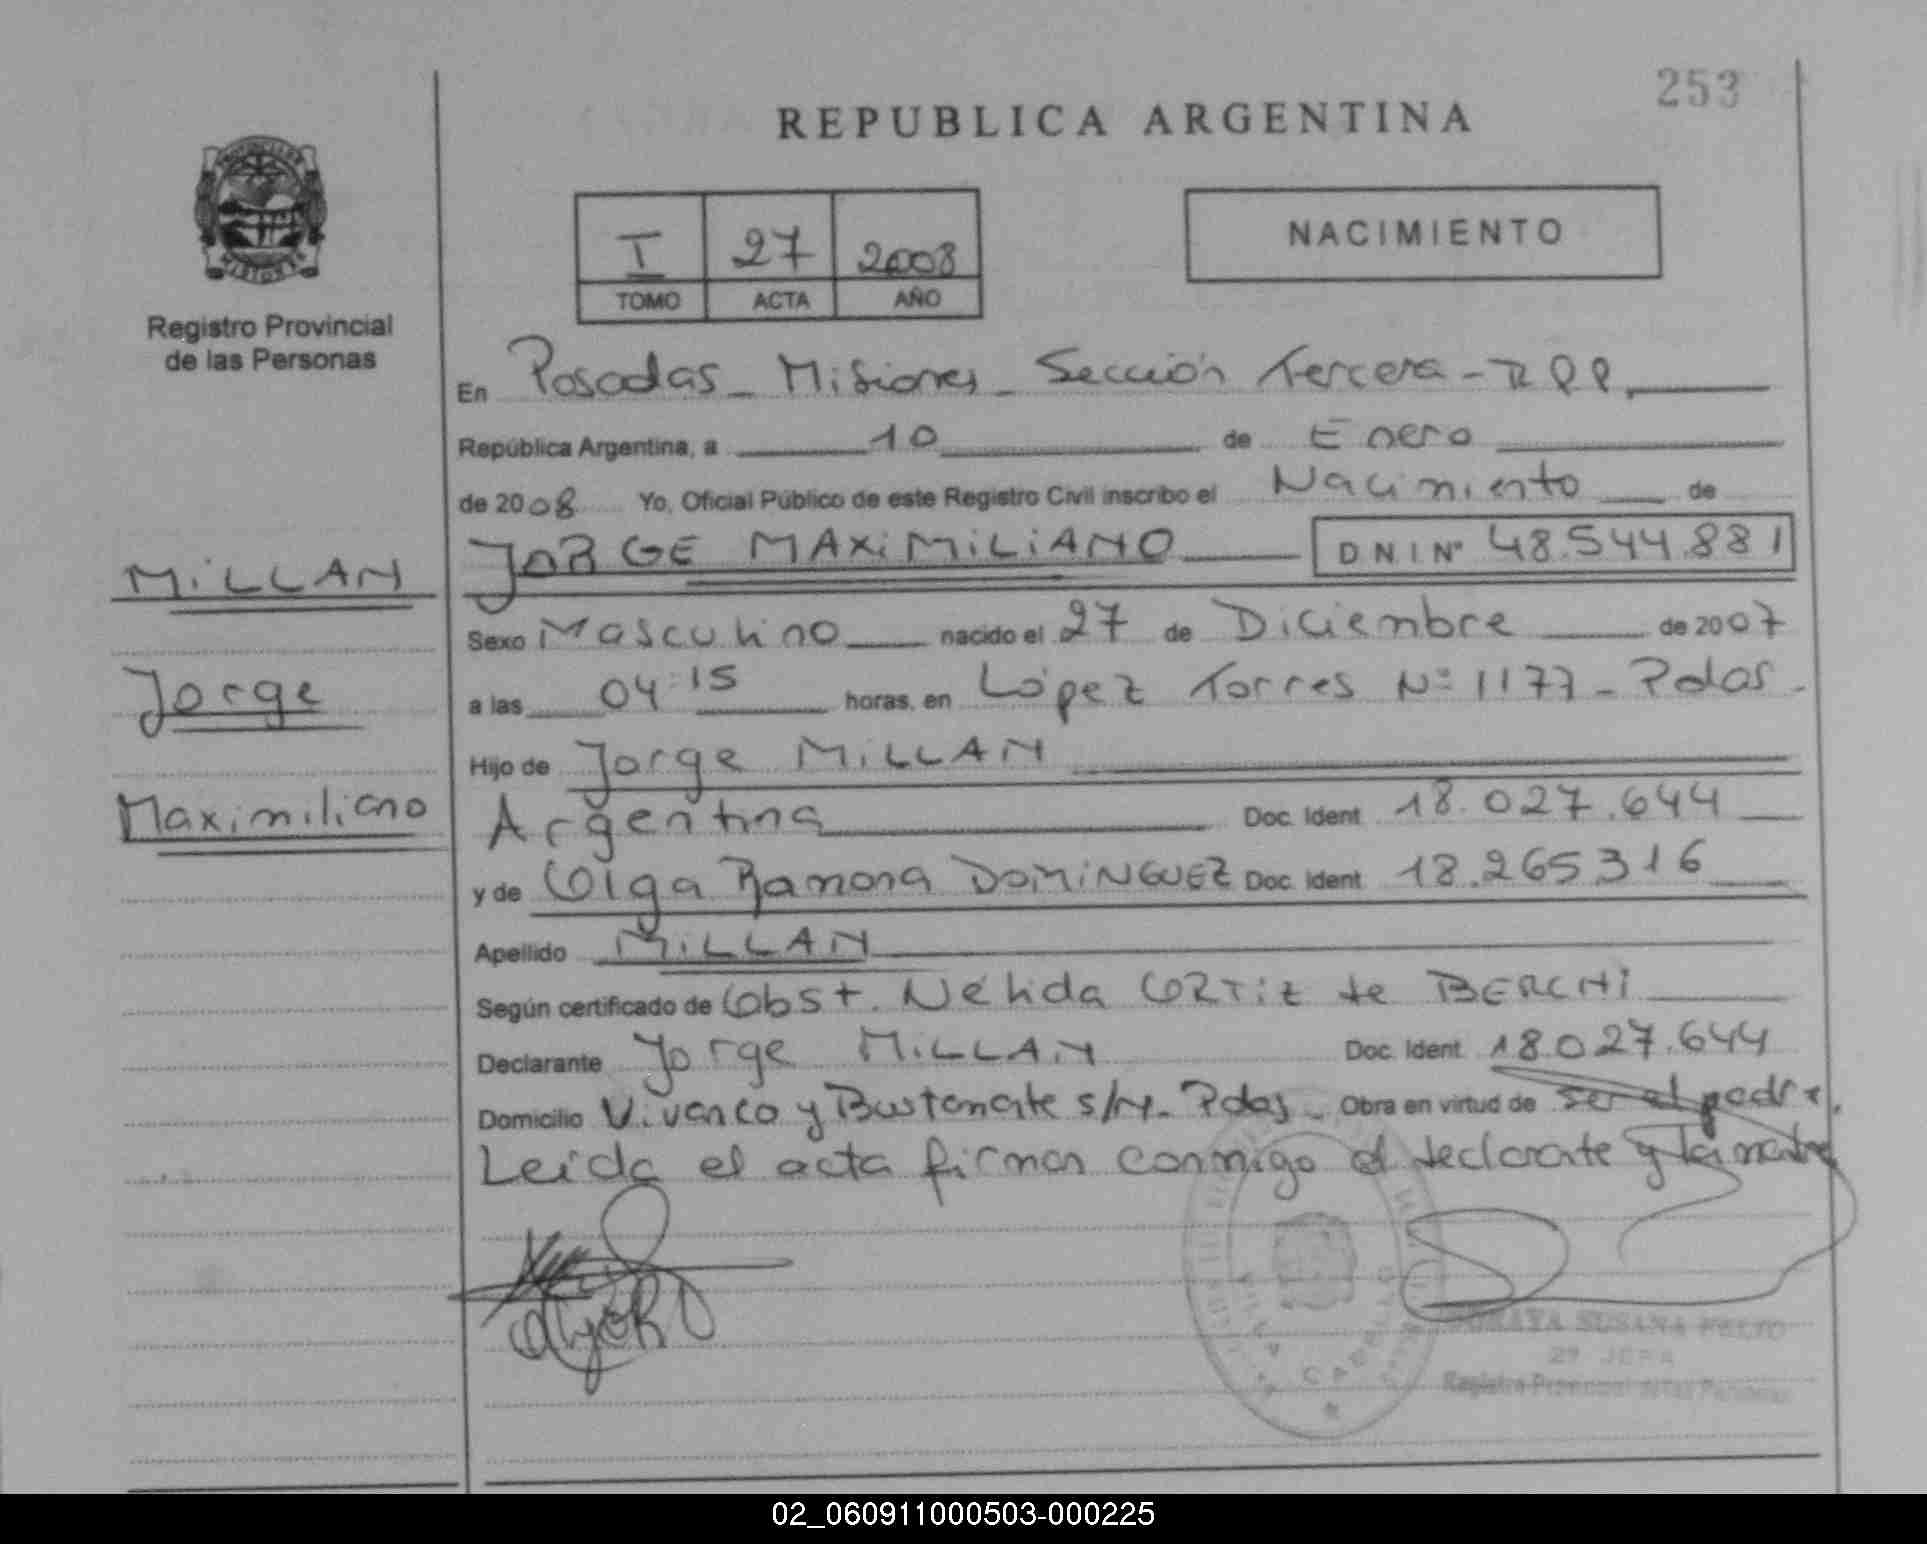 253
REPUBLICA ARGENTINA
PROVINCIA DE
MISIONES
Registro Provincial
de las Personas
I 27 2008
TOMO ACTA AÑO
NACIMIENTO
En Posadas - Misiones - Sección Tercera - RPP,
República Argentina, a 10 de Enero
de 2008 Yo, Oficial Público de este Registro Civil inscribo el Nacimiento de
JORGE MAXiMiLiANO DNI Nº 48.544.881
MiLLAN
Jorge
Maximiliano
Sexo Masculino nacido el 27 de Diciembre de 2007
a las 04:15 horas, en López Torres Nº 1177 - Pdas.
Hijo de Jorge MiLLAN
Argentina Doc. Ident. 18.027.644
y de Olga Ramona DOMiNGUEZ Doc. Ident. 18.265.316
Apellido MiLLAN
Según certificado de Obst. Nélida ORTiZ de BERCHi
Declarante Jorge MiLLAN Doc. Ident. 18.027.644
Domicilio Vivanco y s/N. Pdas. Obra en virtud de ser el padre.
Leida el acta firman conmigo el declarante y la madre
SORAYA SUSANA
2ª JEFA
Registro Provincial de las Personas
02_060911000503-000225